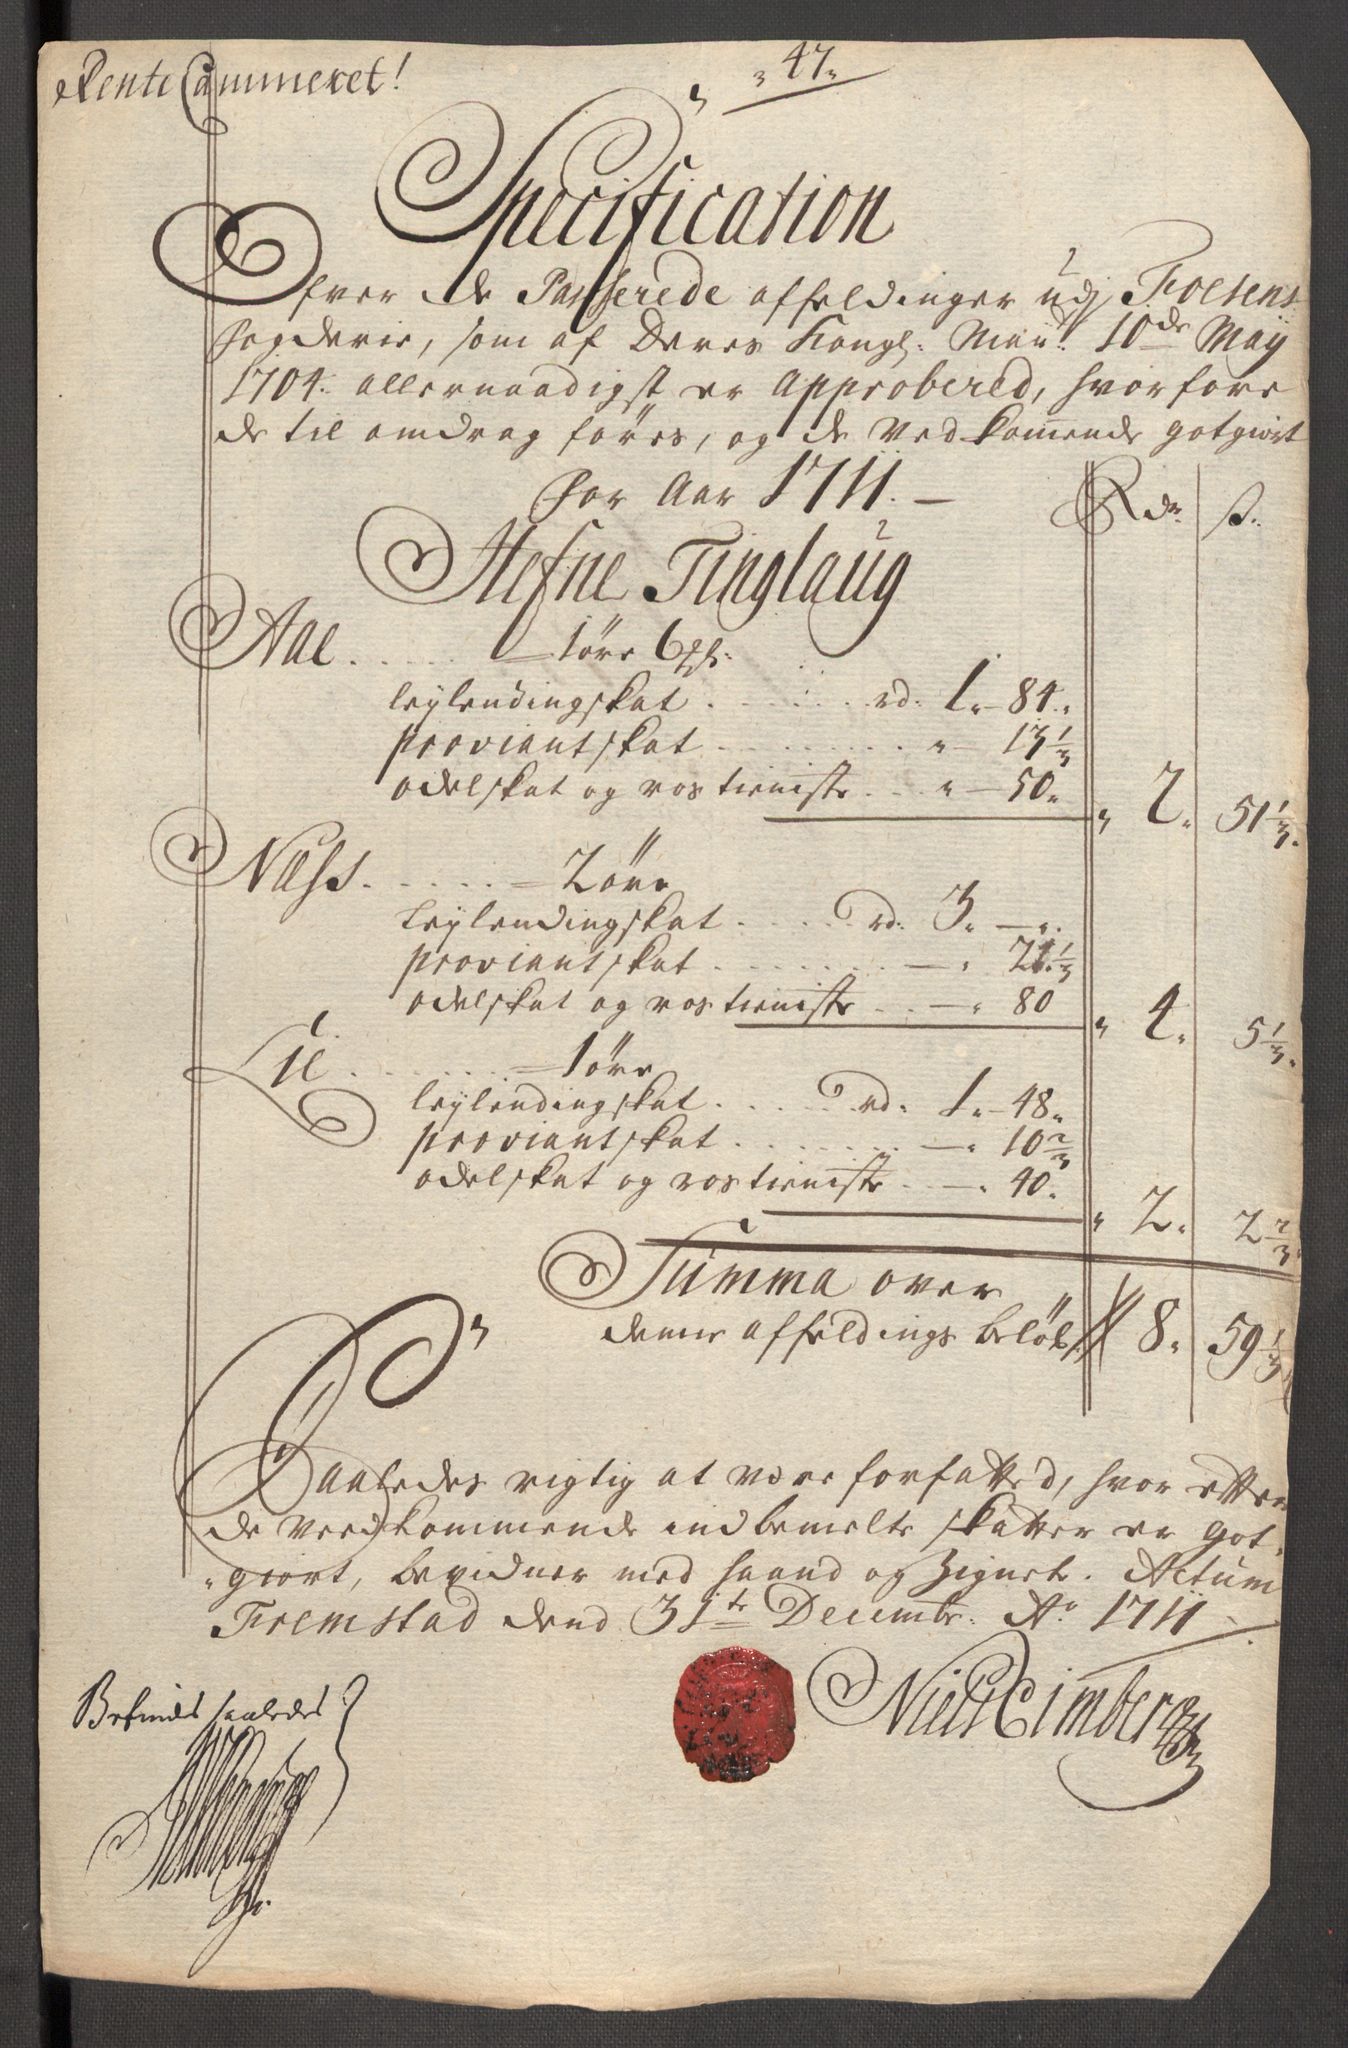 Rente Cammeret!
47.
Specification
Ofver de Passerede affeldinger udj Foesens
fogderie, som af Deres Kongl: May: 10de Maij
1704. allernaadigst er Approbered, hvorfore
de til amdrag föres, og de vedkomende gotgiort
for Aar 1711.
Rdr. s.
Hefne Tinglaug
Aae. . . . . 1 öre 6
leylendingskat . . . . rd. 1. 84.
proviantskat . . . . 13 1/3
odelskat og rostieniste . . 50. 2. 51 1/3.
Næss. . . . . 2 öre
leylendingskat . . . . rd. 3. —.
proviantskat . . . . — . 21 1/3
odelskat og rostieniste . . — . 80 4. 5 1/3.
Lie . . . . . 1 öre
leylendingskat . . . . rd. 1. 48.
proviantskat . . . . — . 10 2/3
odelskat og rostieniste . . — . 40. 2. 2 2/3
Summa over
denne affeldings belöb 8. 59 1/3
Saaledes rigtig at være forfatted, hvor efter
de Vedkommende indbemelte skatter er got-
giort, bevidner med haand og Zignet. Actum
Fremstad dend 31te Decembr: Ao 1711
Niels Cimber
Befindes saaledes